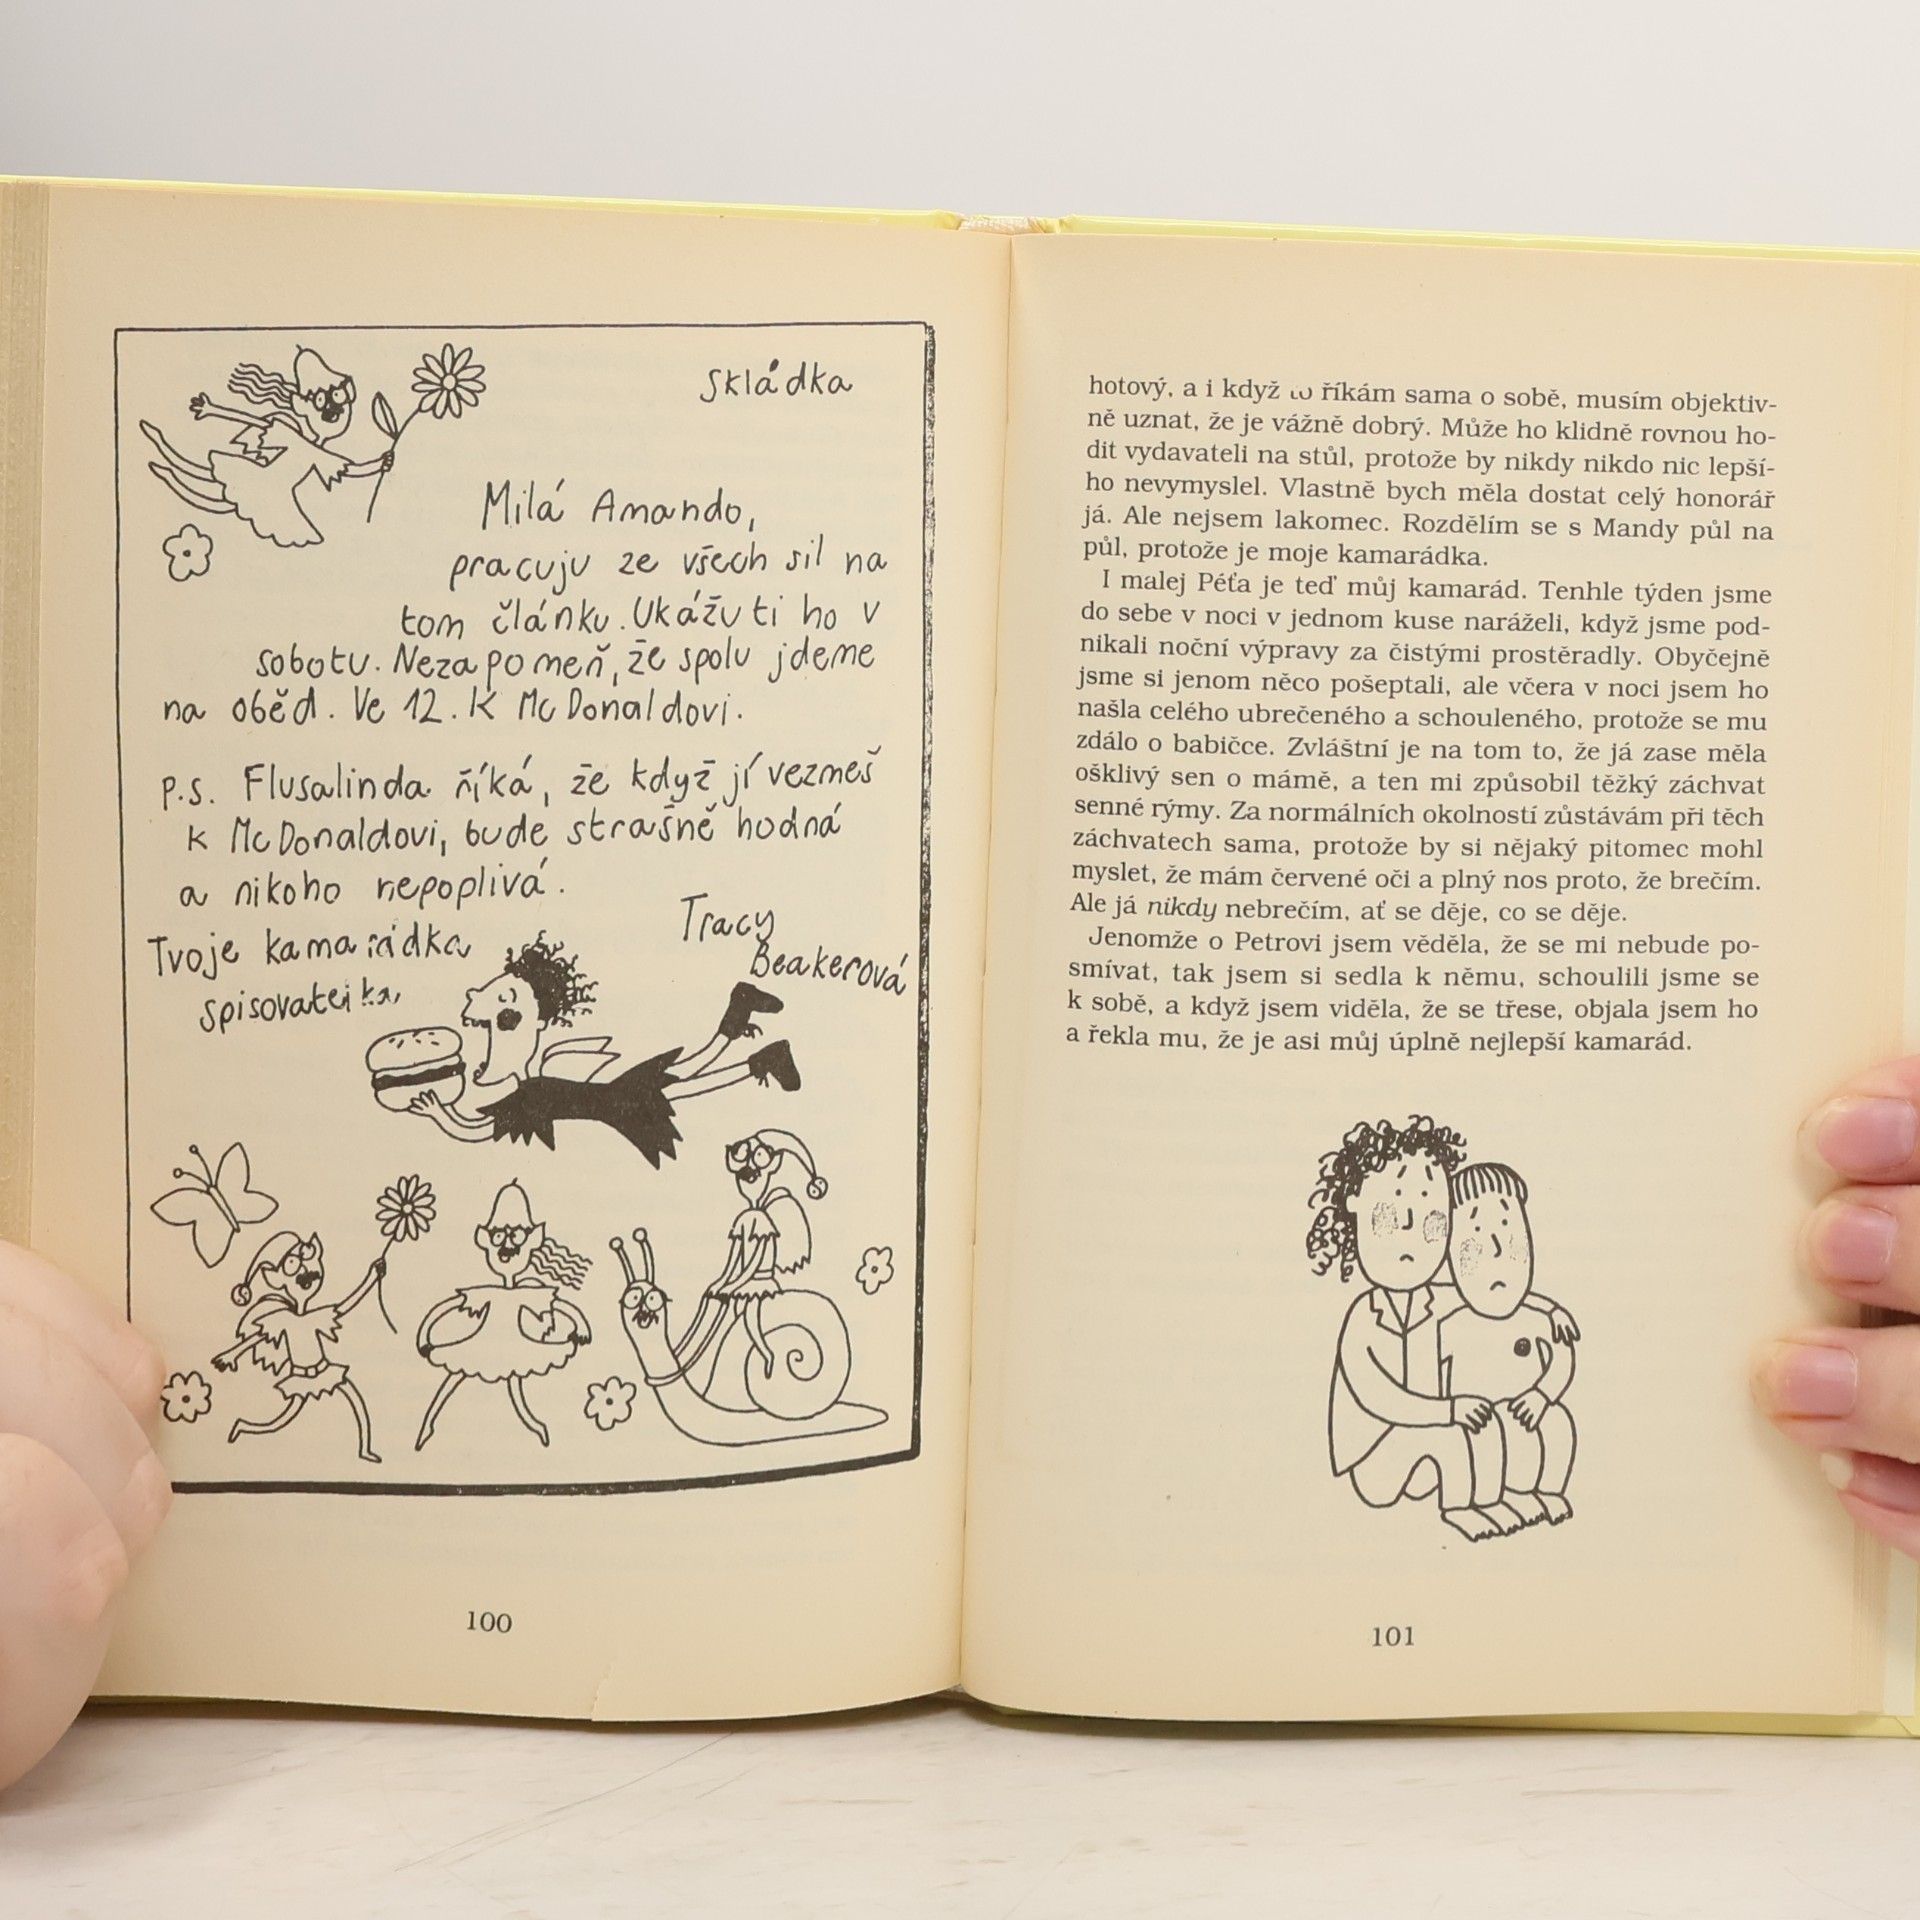 Skládka
Milá Amando,
pracuju ze všech sil na
tom článku. Ukážu ti ho v
sobotu. Nezapomeň, že spolu jdeme
na oběd. Ve 12. K McDonaldovi.
P.S. Flusalinda říká, že když jí vezmeš
k McDonaldovi, bude strašně hodná
a nikoho nepoplivá.
Tvoje kamarádka
spisovatelka,
Tracy
Beakerová
100
hotový, a i když to říkám sama o sobě, musím objektiv-
ně uznat, že je vážně dobrý. Může ho klidně rovnou ho-
dit vydavateli na stůl, protože by nikdy nikdo nic lepší-
ho nevymyslel. Vlastně bych měla dostat celý honorář
já. Ale nejsem lakomec. Rozdělím se s Mandy půl na
půl, protože je moje kamarádka.
I malej Péťa je teď můj kamarád. Tenhle týden jsme
do sebe v noci v jednom kuse naráželi, když jsme pod-
nikali noční výpravy za čistými prostěradly. Obyčejně
jsme si jenom něco pošeptali, ale včera v noci jsem ho
našla celého ubrečeného a schouleného, protože se mu
zdálo o babičce. Zvláštní je na tom to, že já zase měla
ošklivý sen o mámě, a ten mi způsobil těžký záchvat
senné rýmy. Za normálních okolností zůstávám při těch
záchvatech sama, protože by si nějaký pitomec mohl
myslet, že mám červené oči a plný nos proto, že brečím.
Ale já nikdy nebrečím, ať se děje, co se děje.
Jenomže o Petrovi jsem věděla, že se mi nebude po-
smívat, tak jsem si sedla k němu, schoulili jsme se
k sobě, a když jsem viděla, že se třese, objala jsem ho
a řekla mu, že je asi můj úplně nejlepší kamarád.
101